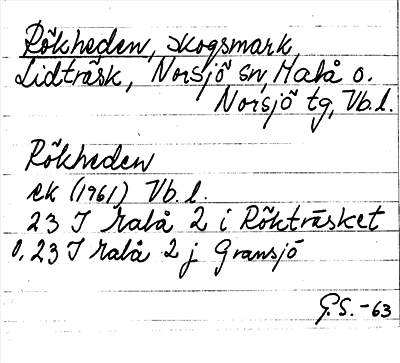 Rökheden, skogsmark,
Lidträsk, Norsjö sn, Malå o.
Norsjö tg, Vb.l.
Rökheden
ek (1961) Vb.l.
23 I Malå 2 i Rökträsket
o. 23 I Malå 2 j Gransjö
G.S. -63